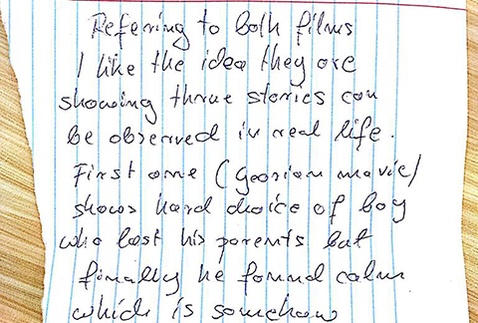 Refering to both films
I like the idea they are
showing thrue stories can
be observed in real life.
First one (Georian movie)
shows hard choice of boy
who lost his parents but
finally he found calm
which is somehow